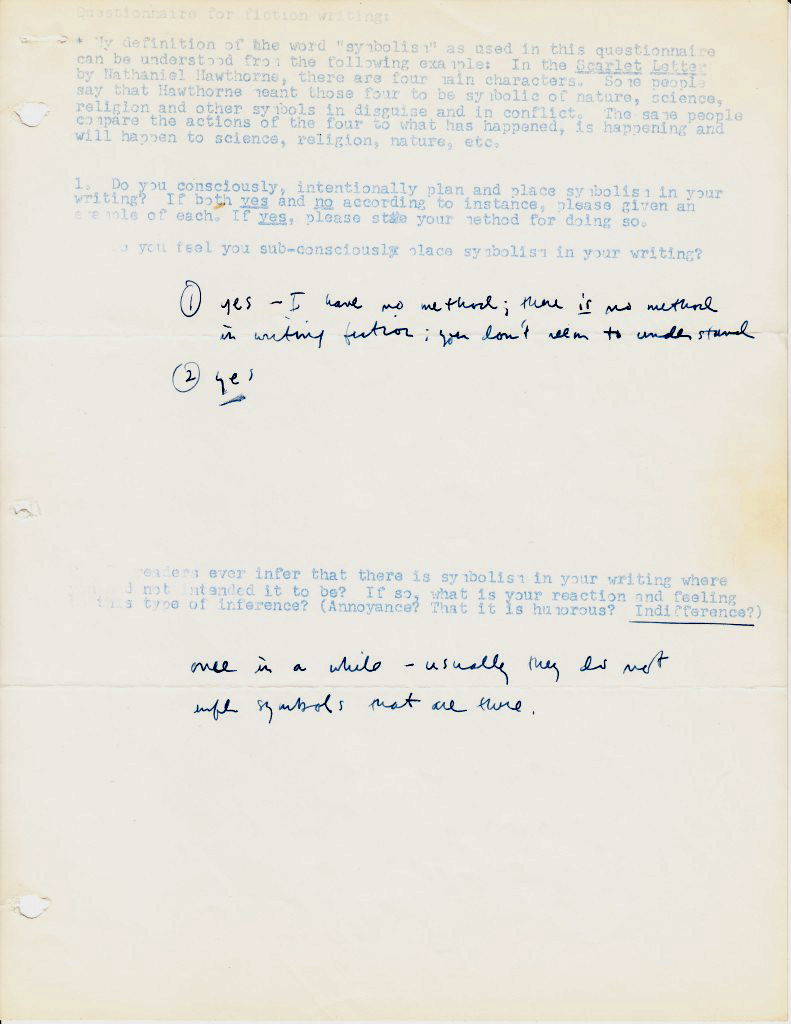 Questionnaire for fiction writing:
* My definition of the word "symbolism" as used in this questionnaire
can be understood from the following example: In the Scarlet Letter
by Nathaniel Hawthorne, there are four main characters. Some people
say that Hawthorne meant those four to be symbolic of nature, science,
religion and other symbols in disguise and in conflict. The same people
compare the actions of the four to what has happened, is happening and
will happen to science, religion, nature, etc.
1. Do you consciously, intentionally plan and place symbolism in your
writing? If both yes and no according to instance, please given an
example of each. If yes, please state your method for doing so.
you feel you sub-consciously place symbolism in your writing?
① yes - I have no method; there is no method
in writing fiction; you don't seem to understand
② yes
readers ever infer that there is symbolism in your writing where
not intended it to be? If so, what is your reaction and feeling
this type of inference? (Annoyance? That it is humorous? Indifference?)
once in a while - usually they do not
symbols that are there.